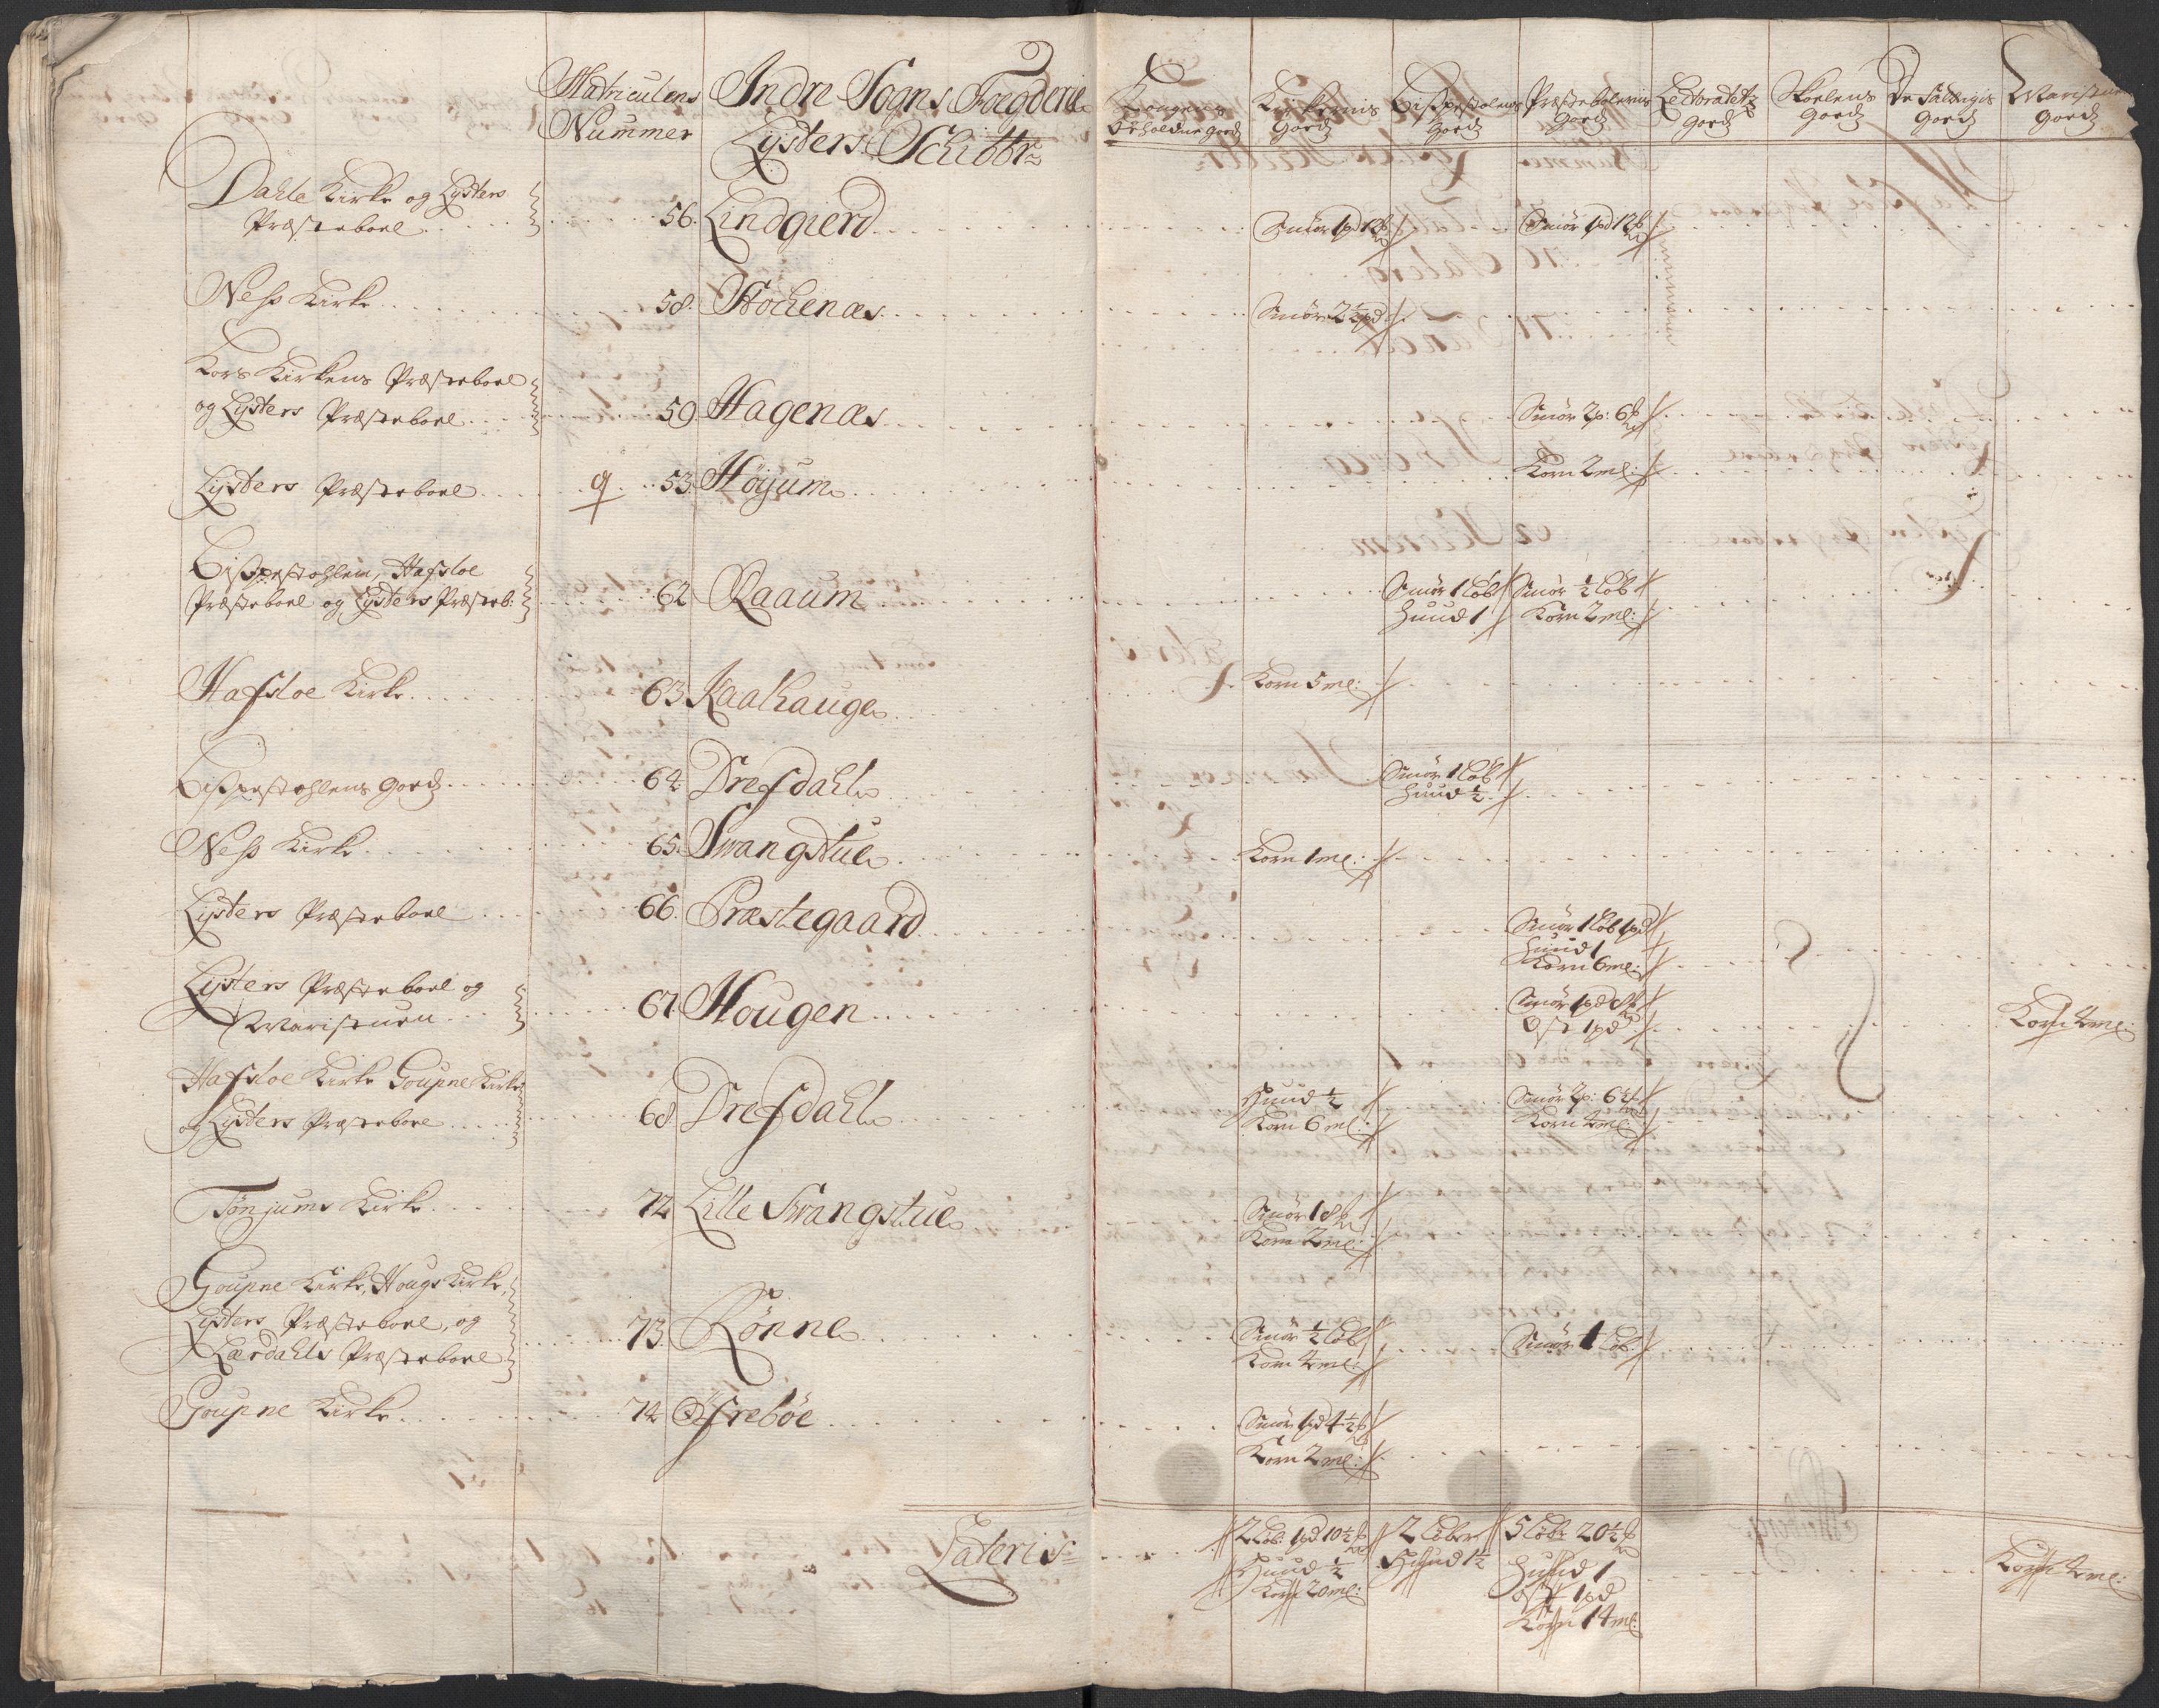 Matriculens
Nummer
Indre Sogns Foegderie
Lysters Schibbre
Kongens
beholdne gods
Kirkernis
gods
Bispestolens
gods
Præstebolernis
gods
Lectoratetz
gods
Skoelens
gods
De fattigis
gods
Maristuens
gods
Dahle Kirke og Lysters
Præsteboel
56. Lindgierd
Smør 1 pd 12 ℔
Smør 1 pd 12 ℔
Neß Kirke
58. Stochenæs
Smør 2½ pd
Kors Kirkens Præsteboel
og Lysters Præsteboel
59 Hagenæs
Smør 2 p: 6 ℔
Lysters Præsteboel
9 53. Høyum
Korn 2 mel:
Bispestohlen, Hafsloe
Præsteboel og Lysters Præsteb:
62 Raaum
Smør 1 Løb
Huud 1
Smør ½ Løb
Korn 2 mel:
Hafsloe Kirke
63. Kaalhauge
Korn 5 mel:
Bispestohlens gods
64 Drefsdahl
Smør 1 Løb
Huud ½
Neß Kirke
65. Svangstue
Korn 1 mel:
Lysters Præsteboel
66. Præstegaard
Smør 1 Løb 1 pd
Huud 1
Korn 6 mel:
Lysters Præsteboel og
Maristuen
67 Hougen
Smør 1 pd 8 ℔
Ost 1 pd
Korn 4 mel:
Hafsloe Kirke Goupne Kirke
og Lysters Præsteboel
68. Drefsdahl
Huud ½
Korn 6 mel:
Smør 2 p: 6½ ℔
Korn 4 mel:
Tønjums Kirke
72 Lille Svangstue
Smør 18 ℔
Korn 2 mel:
Goupne Kirke, Hougs Kirke,
Lysters Præsteboel, og
Lærdahls Præsteboel
73. Rønne
Smør ½ Løb
Korn 4 mel:
Smør 1 Løb
Goupne Kirke
74 Øfrebøe
Smør 1 pd 4½ ℔
Korn 2 mel:
Lateris
2 Løb: 1 pd 10½ ℔
Huud ½
Korn 20 mel:
2 Løber
Huud 1½
5 Løb: 20½ ℔
Huud 1
Ost 1 pd
Korn 14 mel:
Korn 4 mel: